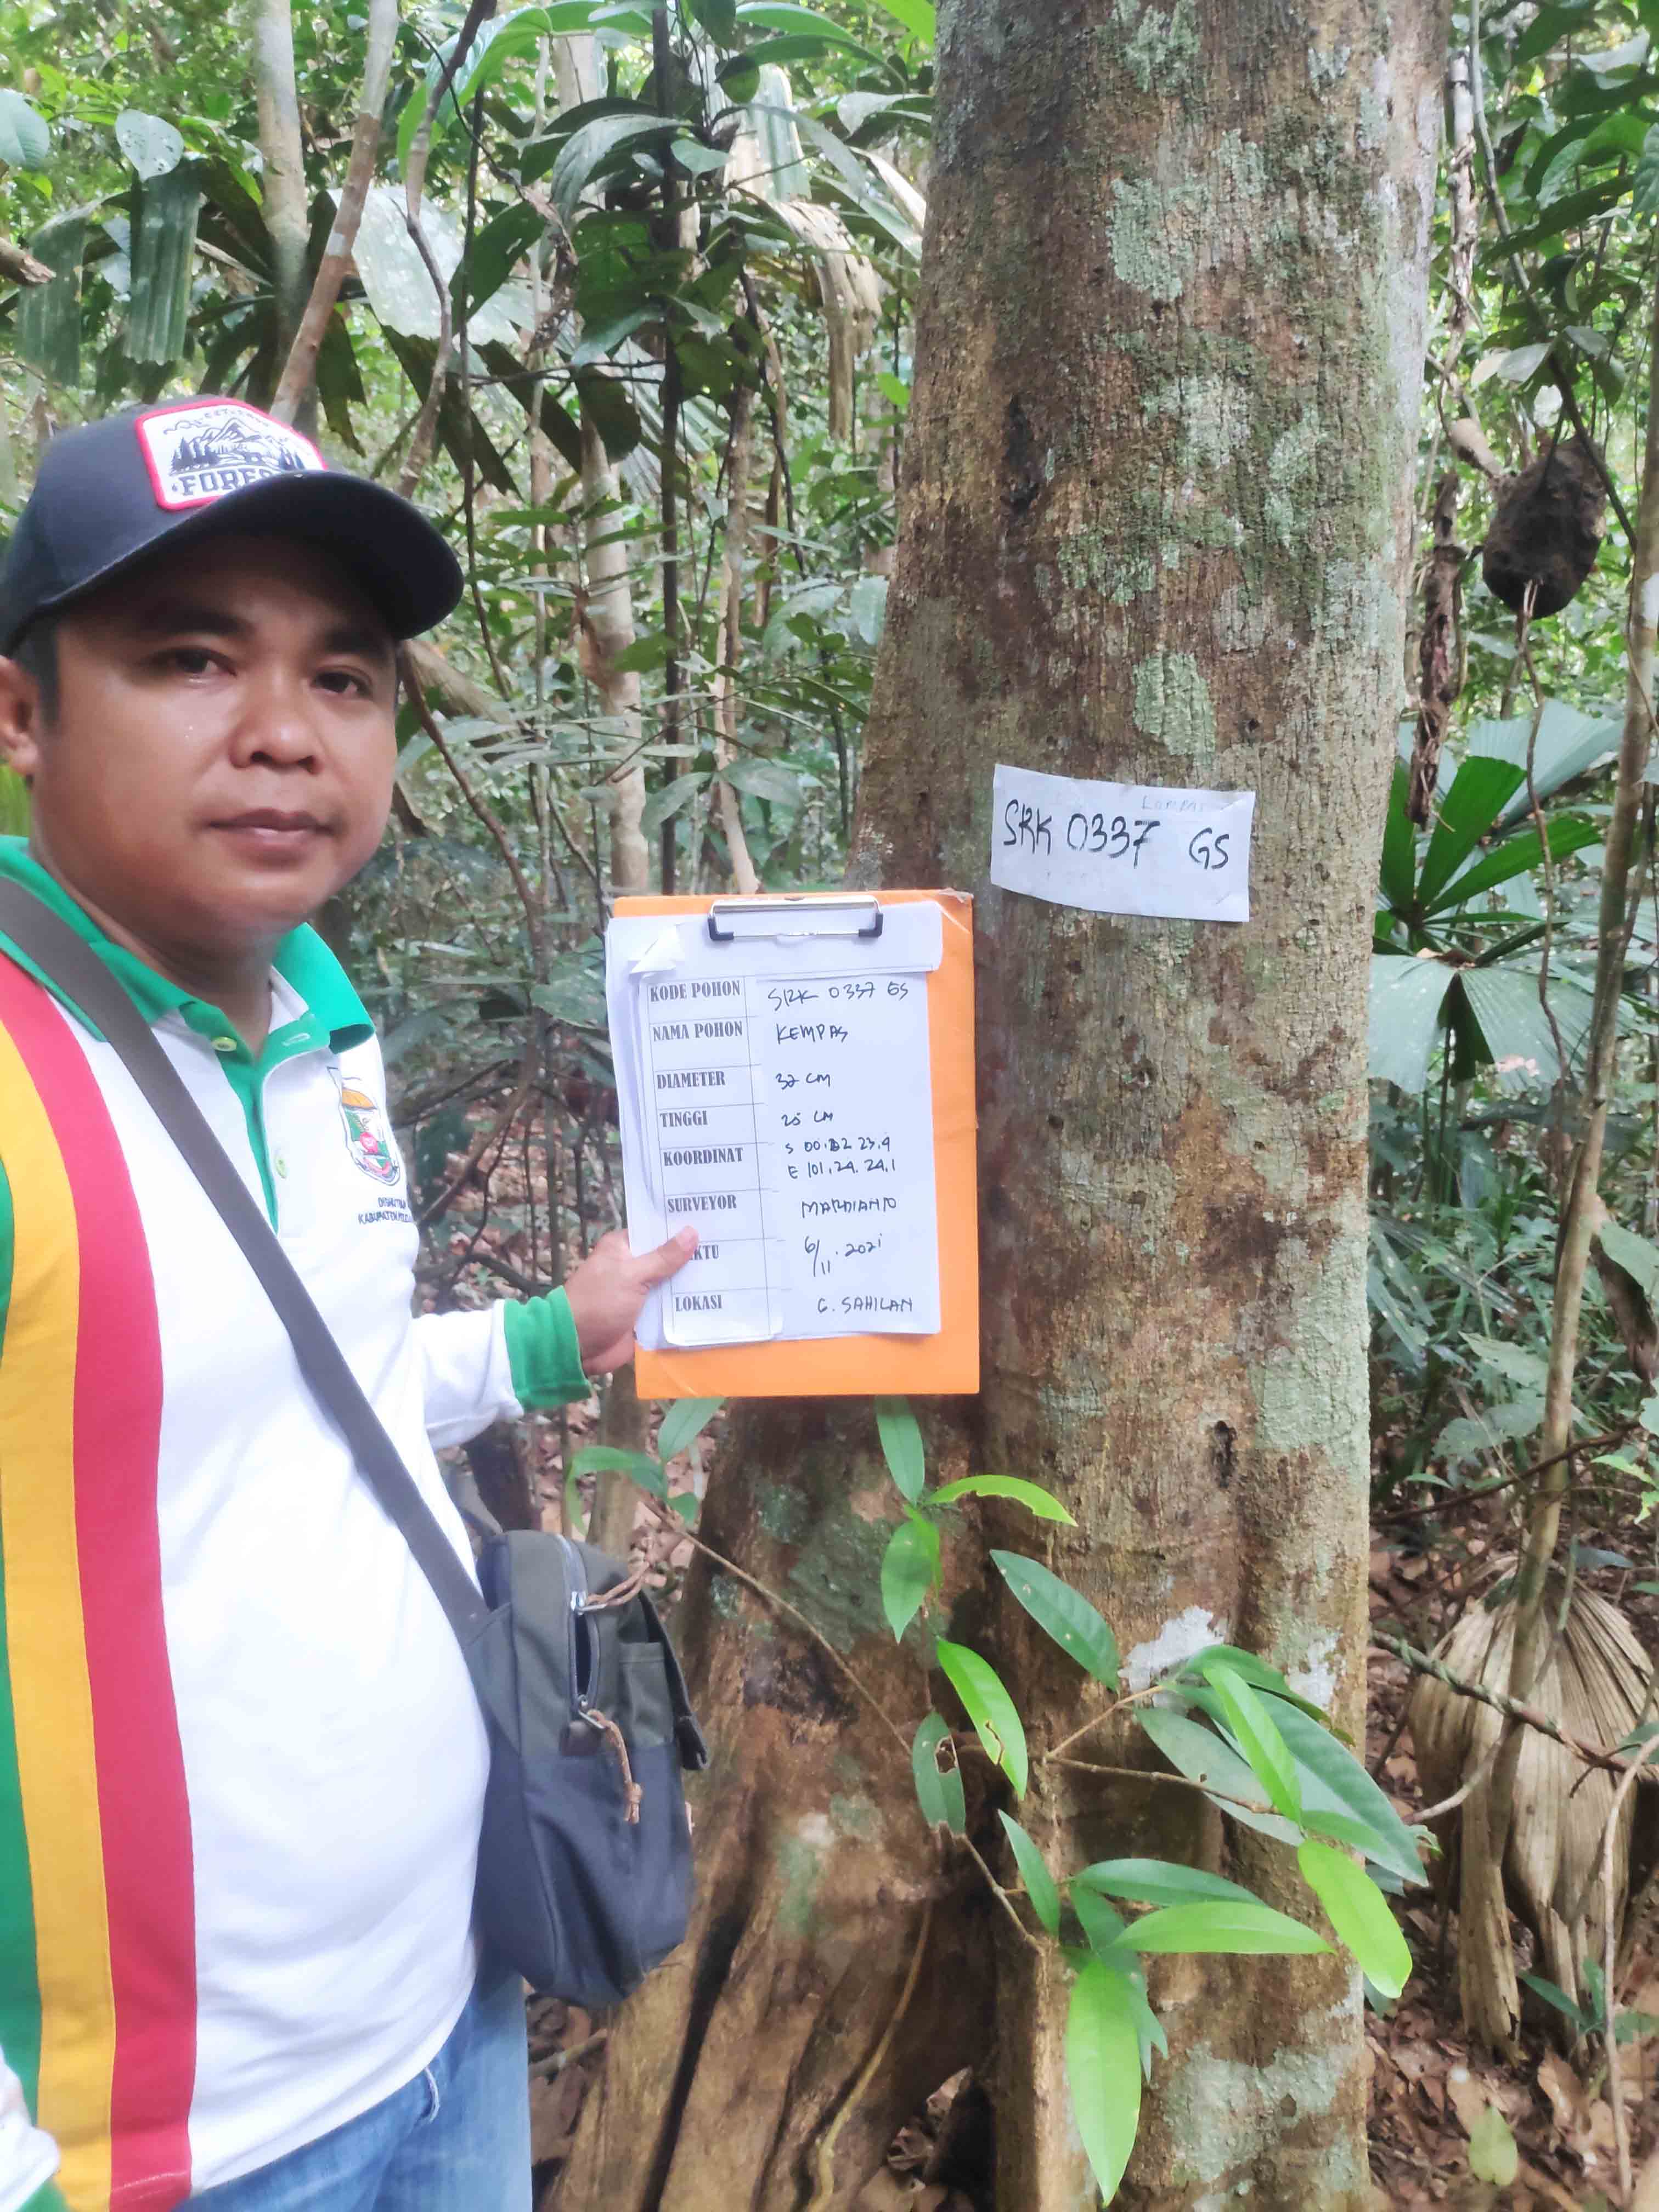 FOREST
SRK 0337 GS
KODE POHON SRK 0337 GS
NAMA POHON KEMPAS
DIAMETER 32 CM
TINGGI 25 CM
KOORDINAT S 00.02 23.4
E 101.24.24.1
SURVEYOR MARDIANTO
6/11.2021
LOKASI G. SAHILAN